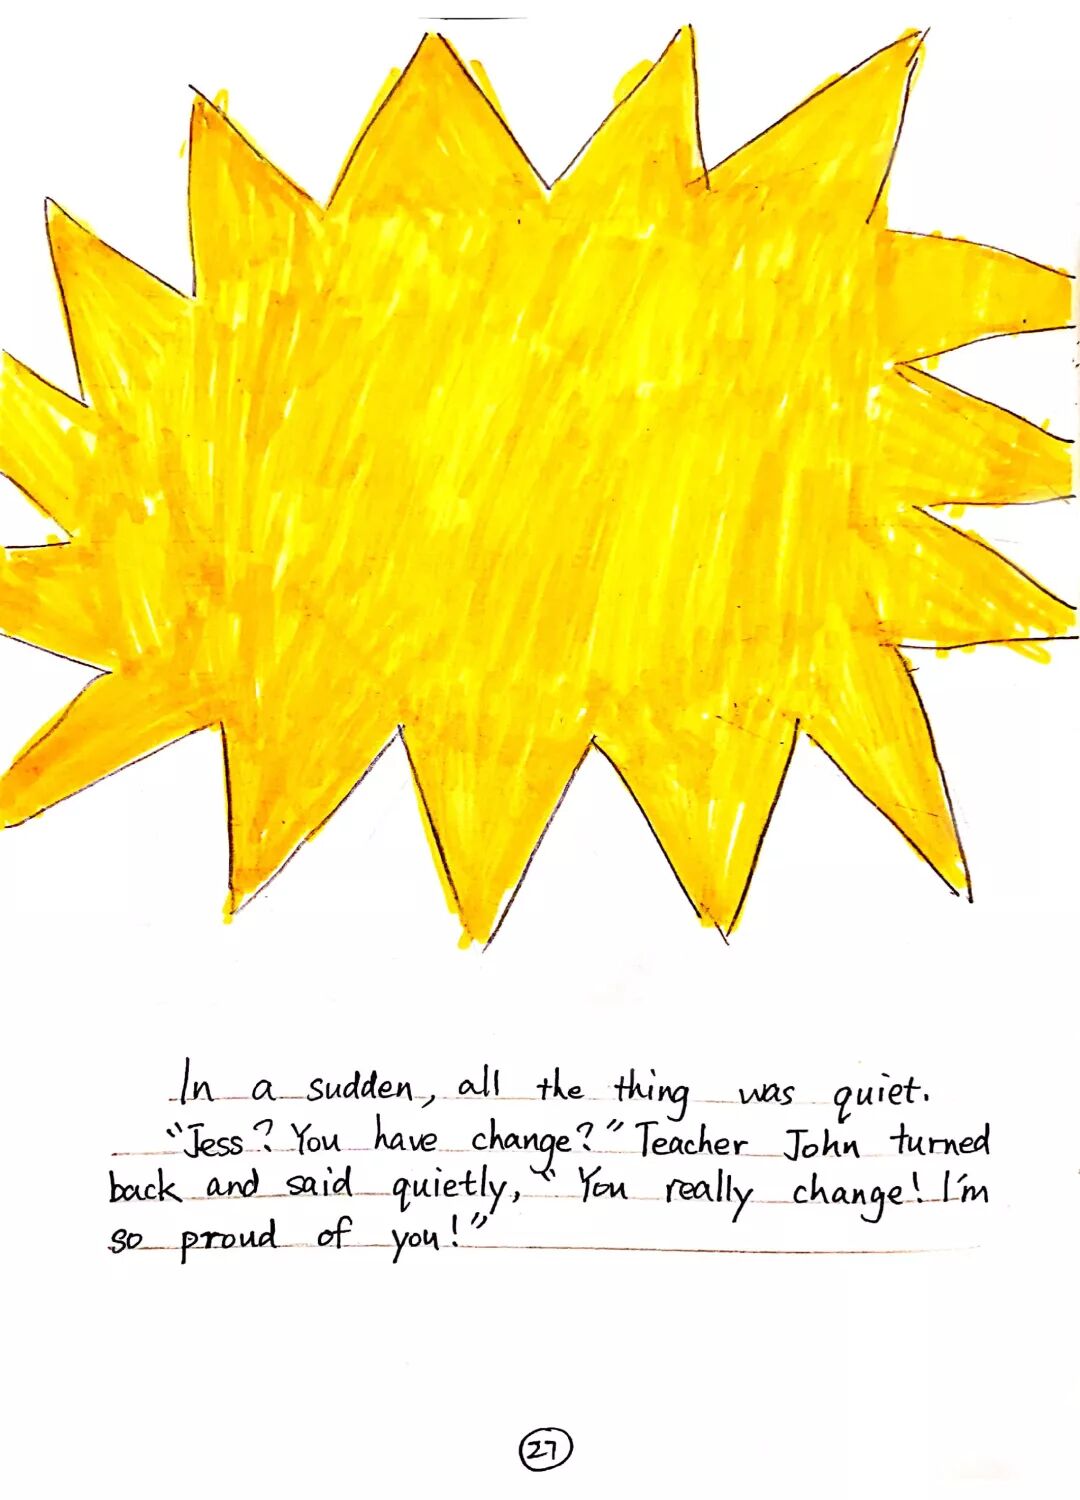 In a sudden, all the thing was quiet.
"Jess? You have change?" Teacher John turned
back and said quietly, "You really change! I'm
so proud of you!"
27